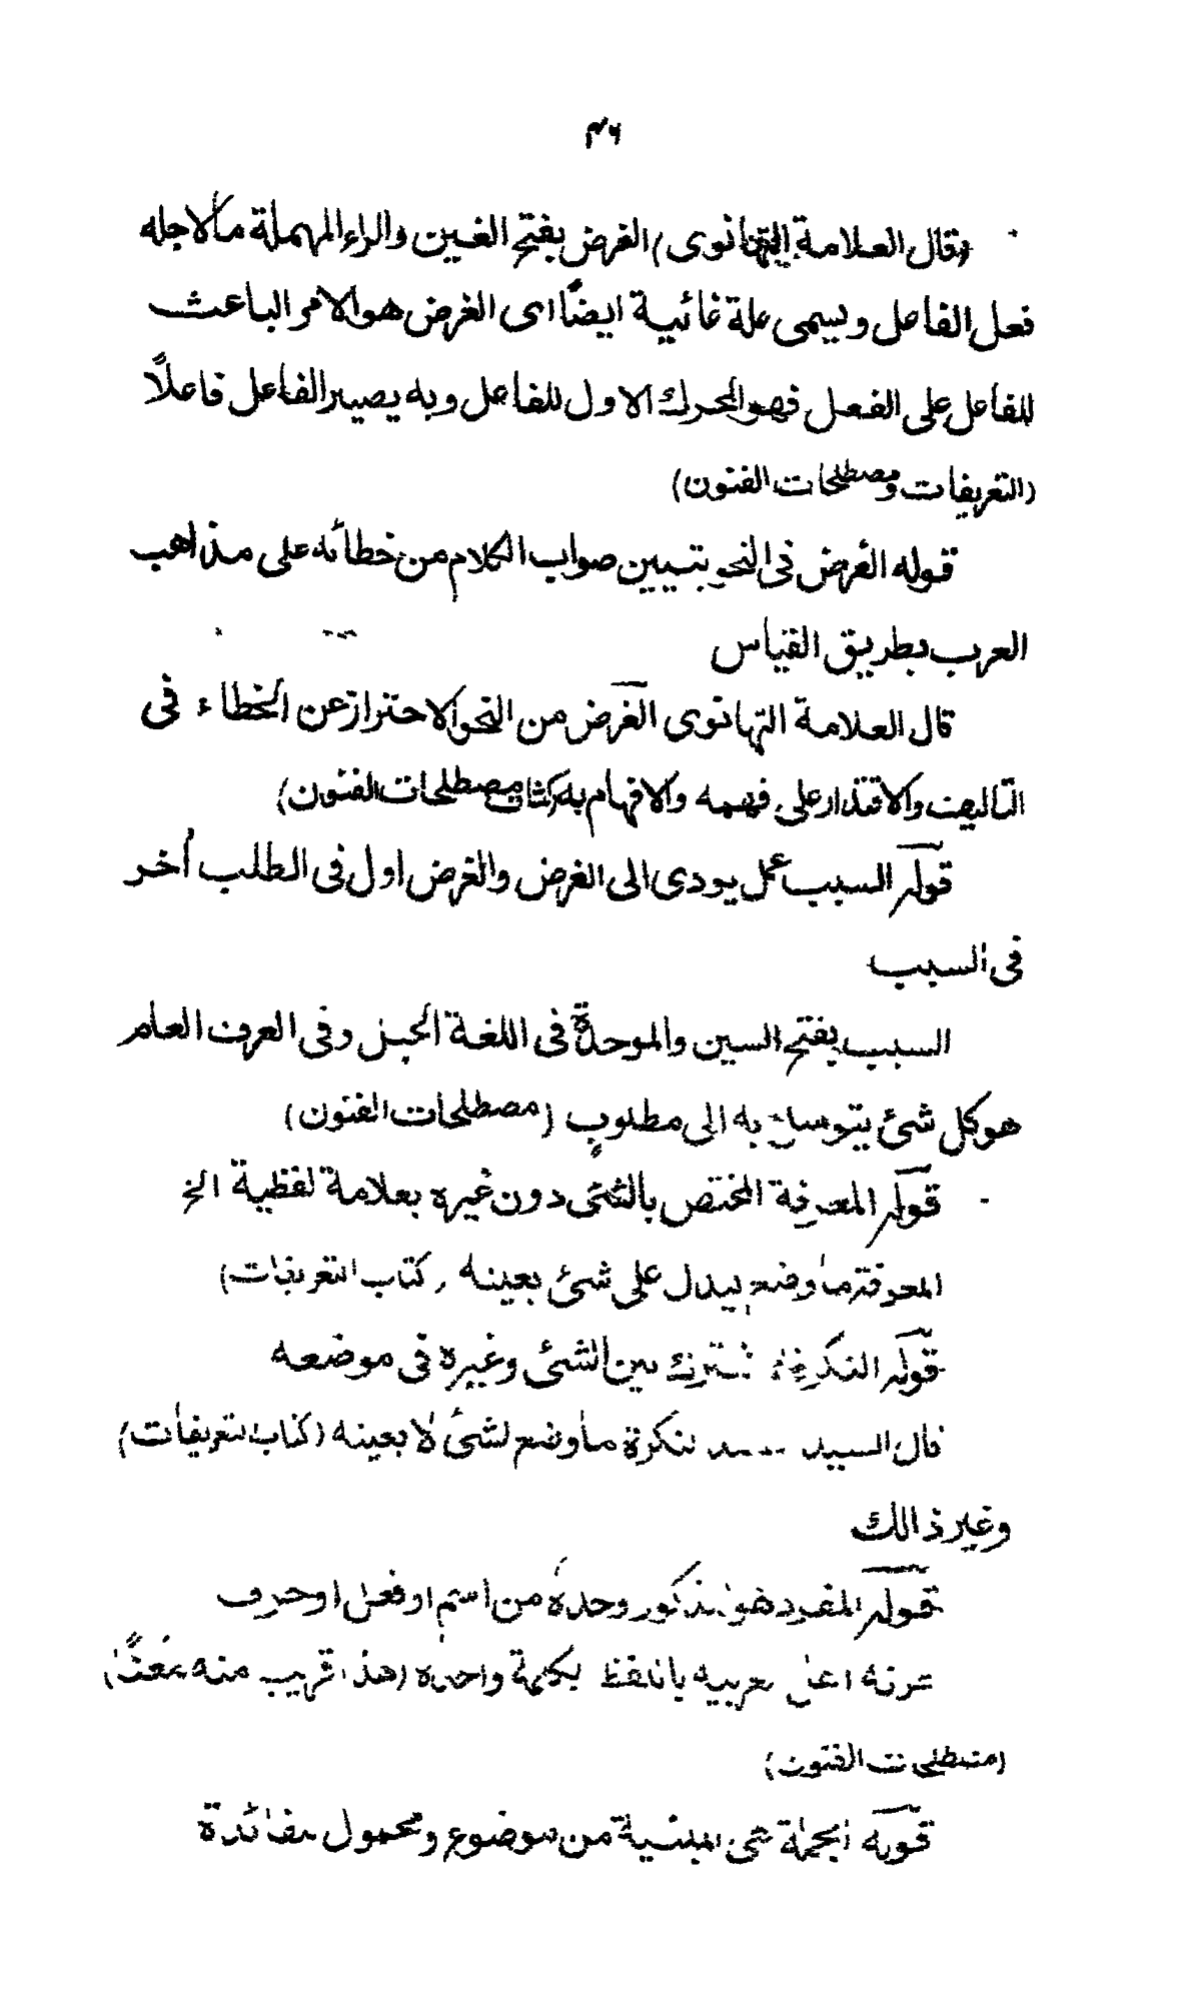 ۴۶
(وقال العلامة التهانوى) الغرض بفتح الغين والراء المهملة ما لاجله
فعل الفاعل ويسمى علة غائية ايضًا اى الغرض هو الامر الباعث
للفاعل على الفعل فهو المحرك الاول للفاعل وبه يصير الفاعل فاعلاً
(التعريفات ومصطلحات الفنون)
قوله الغرض فى النحو تبيين صواب الكلام من خطائه على مذاهب
العرب بطريق القياس
قال العلامة التهانوى الغرض من النحو الاحتراز عن الخطاء فى
التاليف والاقتدار على فهمه والافهام به (كشاف مصطلحات الفنون)
قوله السبب عمل يودى الى الغرض والغرض اول فى الطلب أخر
فى السبب
السبب بفتح السين والموحدة فى اللغة الحبل وفى العرف العام
هو كل شئ يتوسل به الى مطلوب (مصطلحات الفنون)
قوله المعرفة المختص بالشئى دون غيره بعلامة لفظية الخ
المعرفة ما وضع ليدل على شئ بعينه (كتاب التعريفات)
قوله النكرة بين الشئى وغيره فى موضعه
قال السيد النكرة ما وضع لشئ لا بعينه (كتاب التعريفات)
وغير ذالك
قوله المفرد هو مذكور وحده من اسم او فعل او حرف
بكلمة واحدة (هذا قريب منه معنًا)
(مصطلحات الفنون)
قوله الجملة هى المبنية من موضوع ومحمول للفائدة